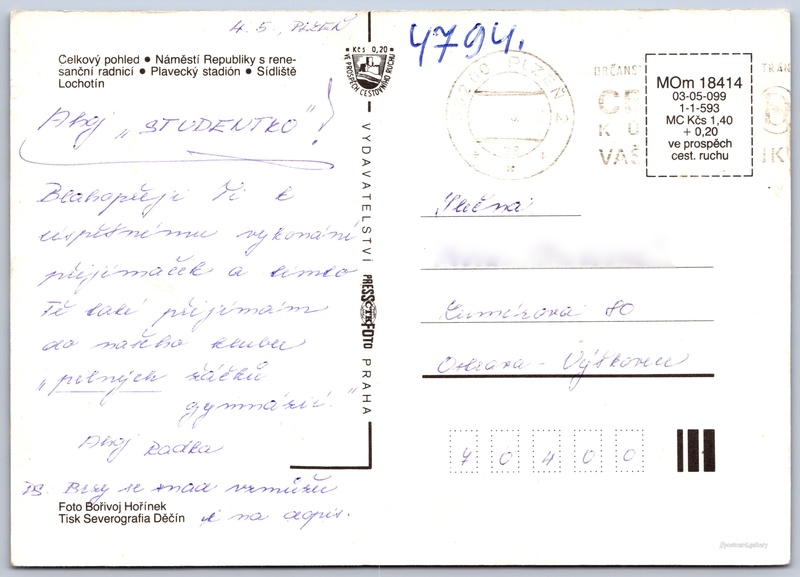 4.5., Plzeň
4794.
Celkový pohled ● Náměstí Republiky s rene-
sanční radnicí ● Plavecký stadión ● Sídliště
Lochotín
Kčs 0,20
VE PROSPĚCH CESTOVNÍHO RUCHU
Ahoj „STUDENTKO"!
Blahopřeji Ti k
úspěšnému vykonání
přijímaček a tímto
Tě také přijímám
do našeho klubu
„pilných žáčků
gymnázií."
Ahoj Radka
PS. Brzy se snad vzmůžu
i na dopis.
Foto Bořivoj Hořínek
Tisk Severografia Děčín
VYDAVATELSTVÍ PRESSFOTO PRAHA
ČTK
PLZEŇ 2
MOm 18414
03-05-099
1-1-593
MC Kčs 1,40
+ 0,20
ve prospěch
cest. ruchu
Slečna
Lumírova 80
Ostrava - Výškovice
70400
//postcard.gallery